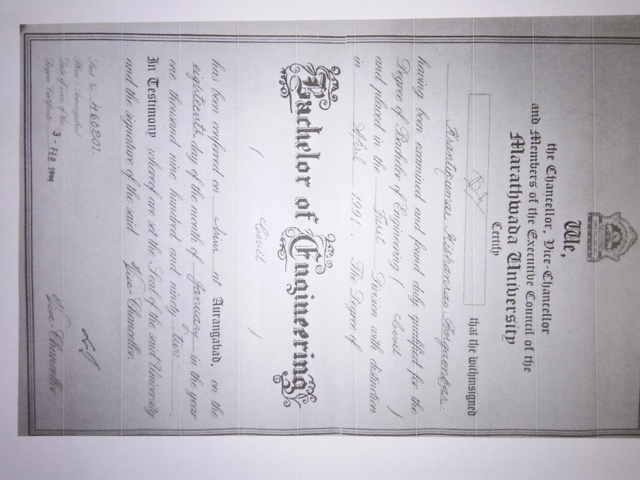 We,
the Chancellor, Vice-Chancellor
and Members of the Executive Council of the
Marathwada University
Certify
that the withinsigned
Krantikumar Kishanrao
having been examined and found duly qualified for the
Degree of Bachelor of Engineering ( Civil )
and placed in the First Division with distinction
in April 1991. The Degree of
Bachelor of Engineering
( Civil )
has been conferred on at Aurangabad, on the
eighteenth day of the month of January in the year
one thousand nine hundred and ninety two
In Testimony whereof are set the Seal of the said University
and the signature of the said Vice-Chancellor.
Vice-Chancellor
Seat No. 460201.
3 - FEB